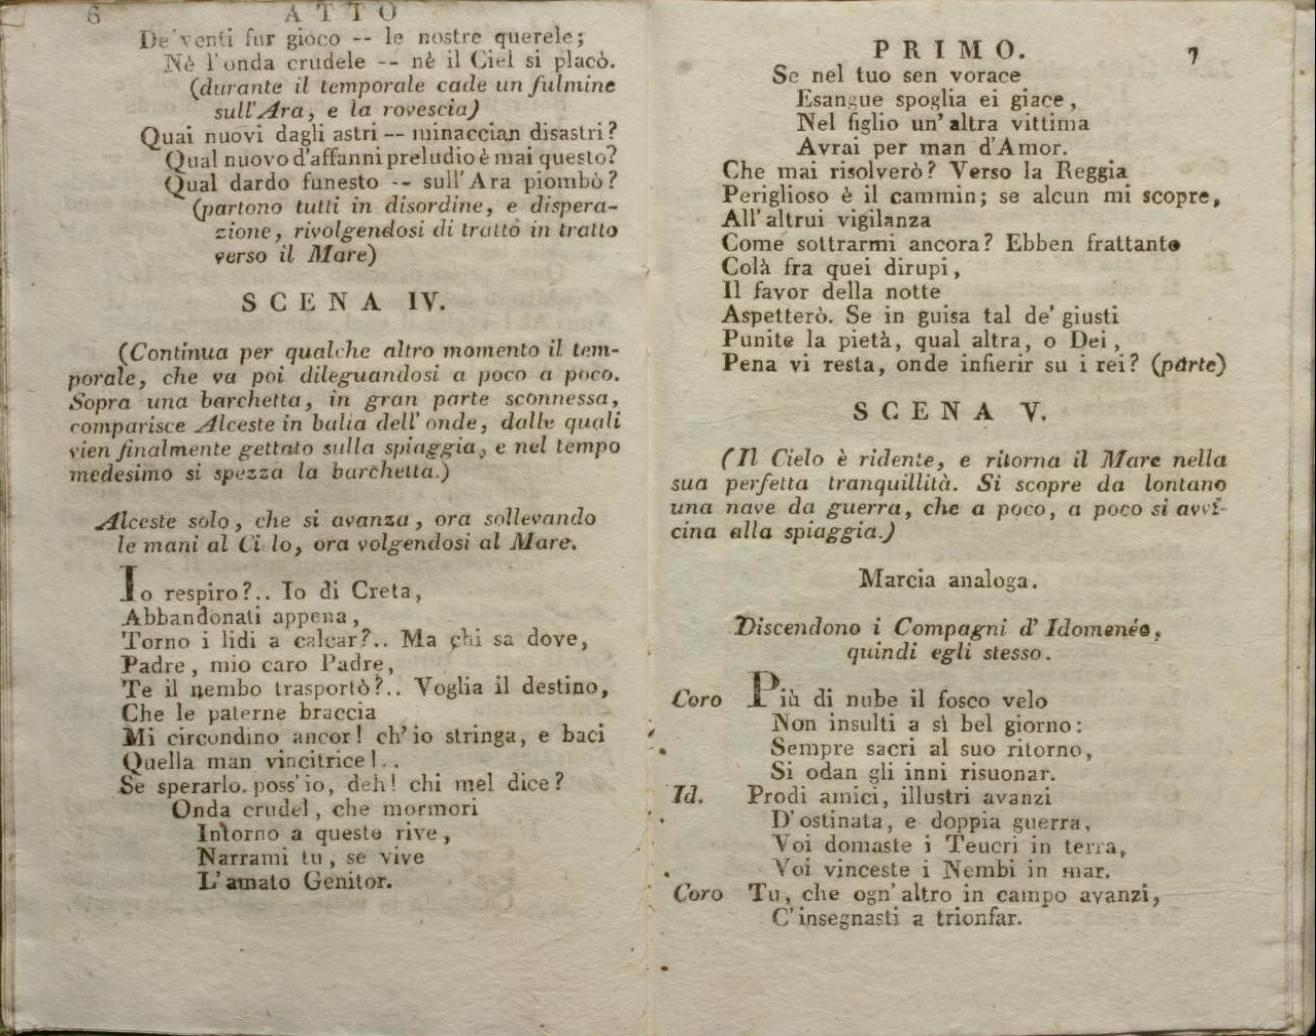 6 ATTO
De' venti fur gioco -- le nostre querele;
Nè l'onda crudele -- nè il Ciel si placò.
(durante il temporale cade un fulmine
sull'Ara, e la rovescia)
Quai nuovi dagli astri -- minaccian disastri?
Qual nuovo d'affanni preludio è mai questo?
Qual dardo funesto -- sull'Ara piombò?
(partono tutti in disordine, e dispera-
zione, rivolgendosi di tratto in tratto
verso il Mare)
SCENA IV.
(Continua per qualche altro momento il tem-
porale, che va poi dileguandosi a poco a poco.
Sopra una barchetta, in gran parte sconnessa,
comparisce Alceste in balìa dell'onde, dalle quali
vien finalmente gettato sulla spiaggia, e nel tempo
medesimo si spezza la barchetta.)
Alceste solo, che si avanza, ora sollevando
le mani al Ci lo, ora volgendosi al Mare.
Io respiro?.. Io di Creta,
Abbandonati appena,
Torno i lidi a calcar?.. Ma chi sa dove,
Padre, mio caro Padre,
Te il nembo trasportò?.. Voglia il destino,
Che le paterne braccia
Mi circondino ancor! ch'io stringa, e baci
Quella man vincitrice!..
Se sperarlo poss'io, deh! chi mel dice?
Onda crudel, che mormori
Intorno a queste rive,
Narrami tu, se vive
L'amato Genitor.
PRIMO. 7
Se nel tuo sen vorace
Esangue spoglia ei giace,
Nel figlio un'altra vittima
Avrai per man d'Amor.
Che mai risolverò? Verso la Reggia
Periglioso è il cammin; se alcun mi scopre,
All'altrui vigilanza
Come sottrarmi ancora? Ebben frattanto
Colà fra quei dirupi,
Il favor della notte
Aspetterò. Se in guisa tal de' giusti
Punite la pietà, qual altra, o Dei,
Pena vi resta, onde infierir su i rei? (parte)
SCENA V.
(Il Cielo è ridente, e ritorna il Mare nella
sua perfetta tranquillità. Si scopre da lontano
una nave da guerra, che a poco, a poco si avvi-
cina alla spiaggia.)
Marcia analoga.
Discendono i Compagni d'Idomenéo,
quindi egli stesso.
Coro Più di nube il fosco velo
Non insulti a sì bel giorno:
Sempre sacri al suo ritorno,
Si odan gli inni risuonar.
Id. Prodi amici, illustri avanzi
D'ostinata, e doppia guerra,
Voi domaste i Teucri in terra,
Voi vinceste i Nembi in mar.
Coro Tu, che ogn'altro in campo avanzi,
C'insegnasti a trionfar.